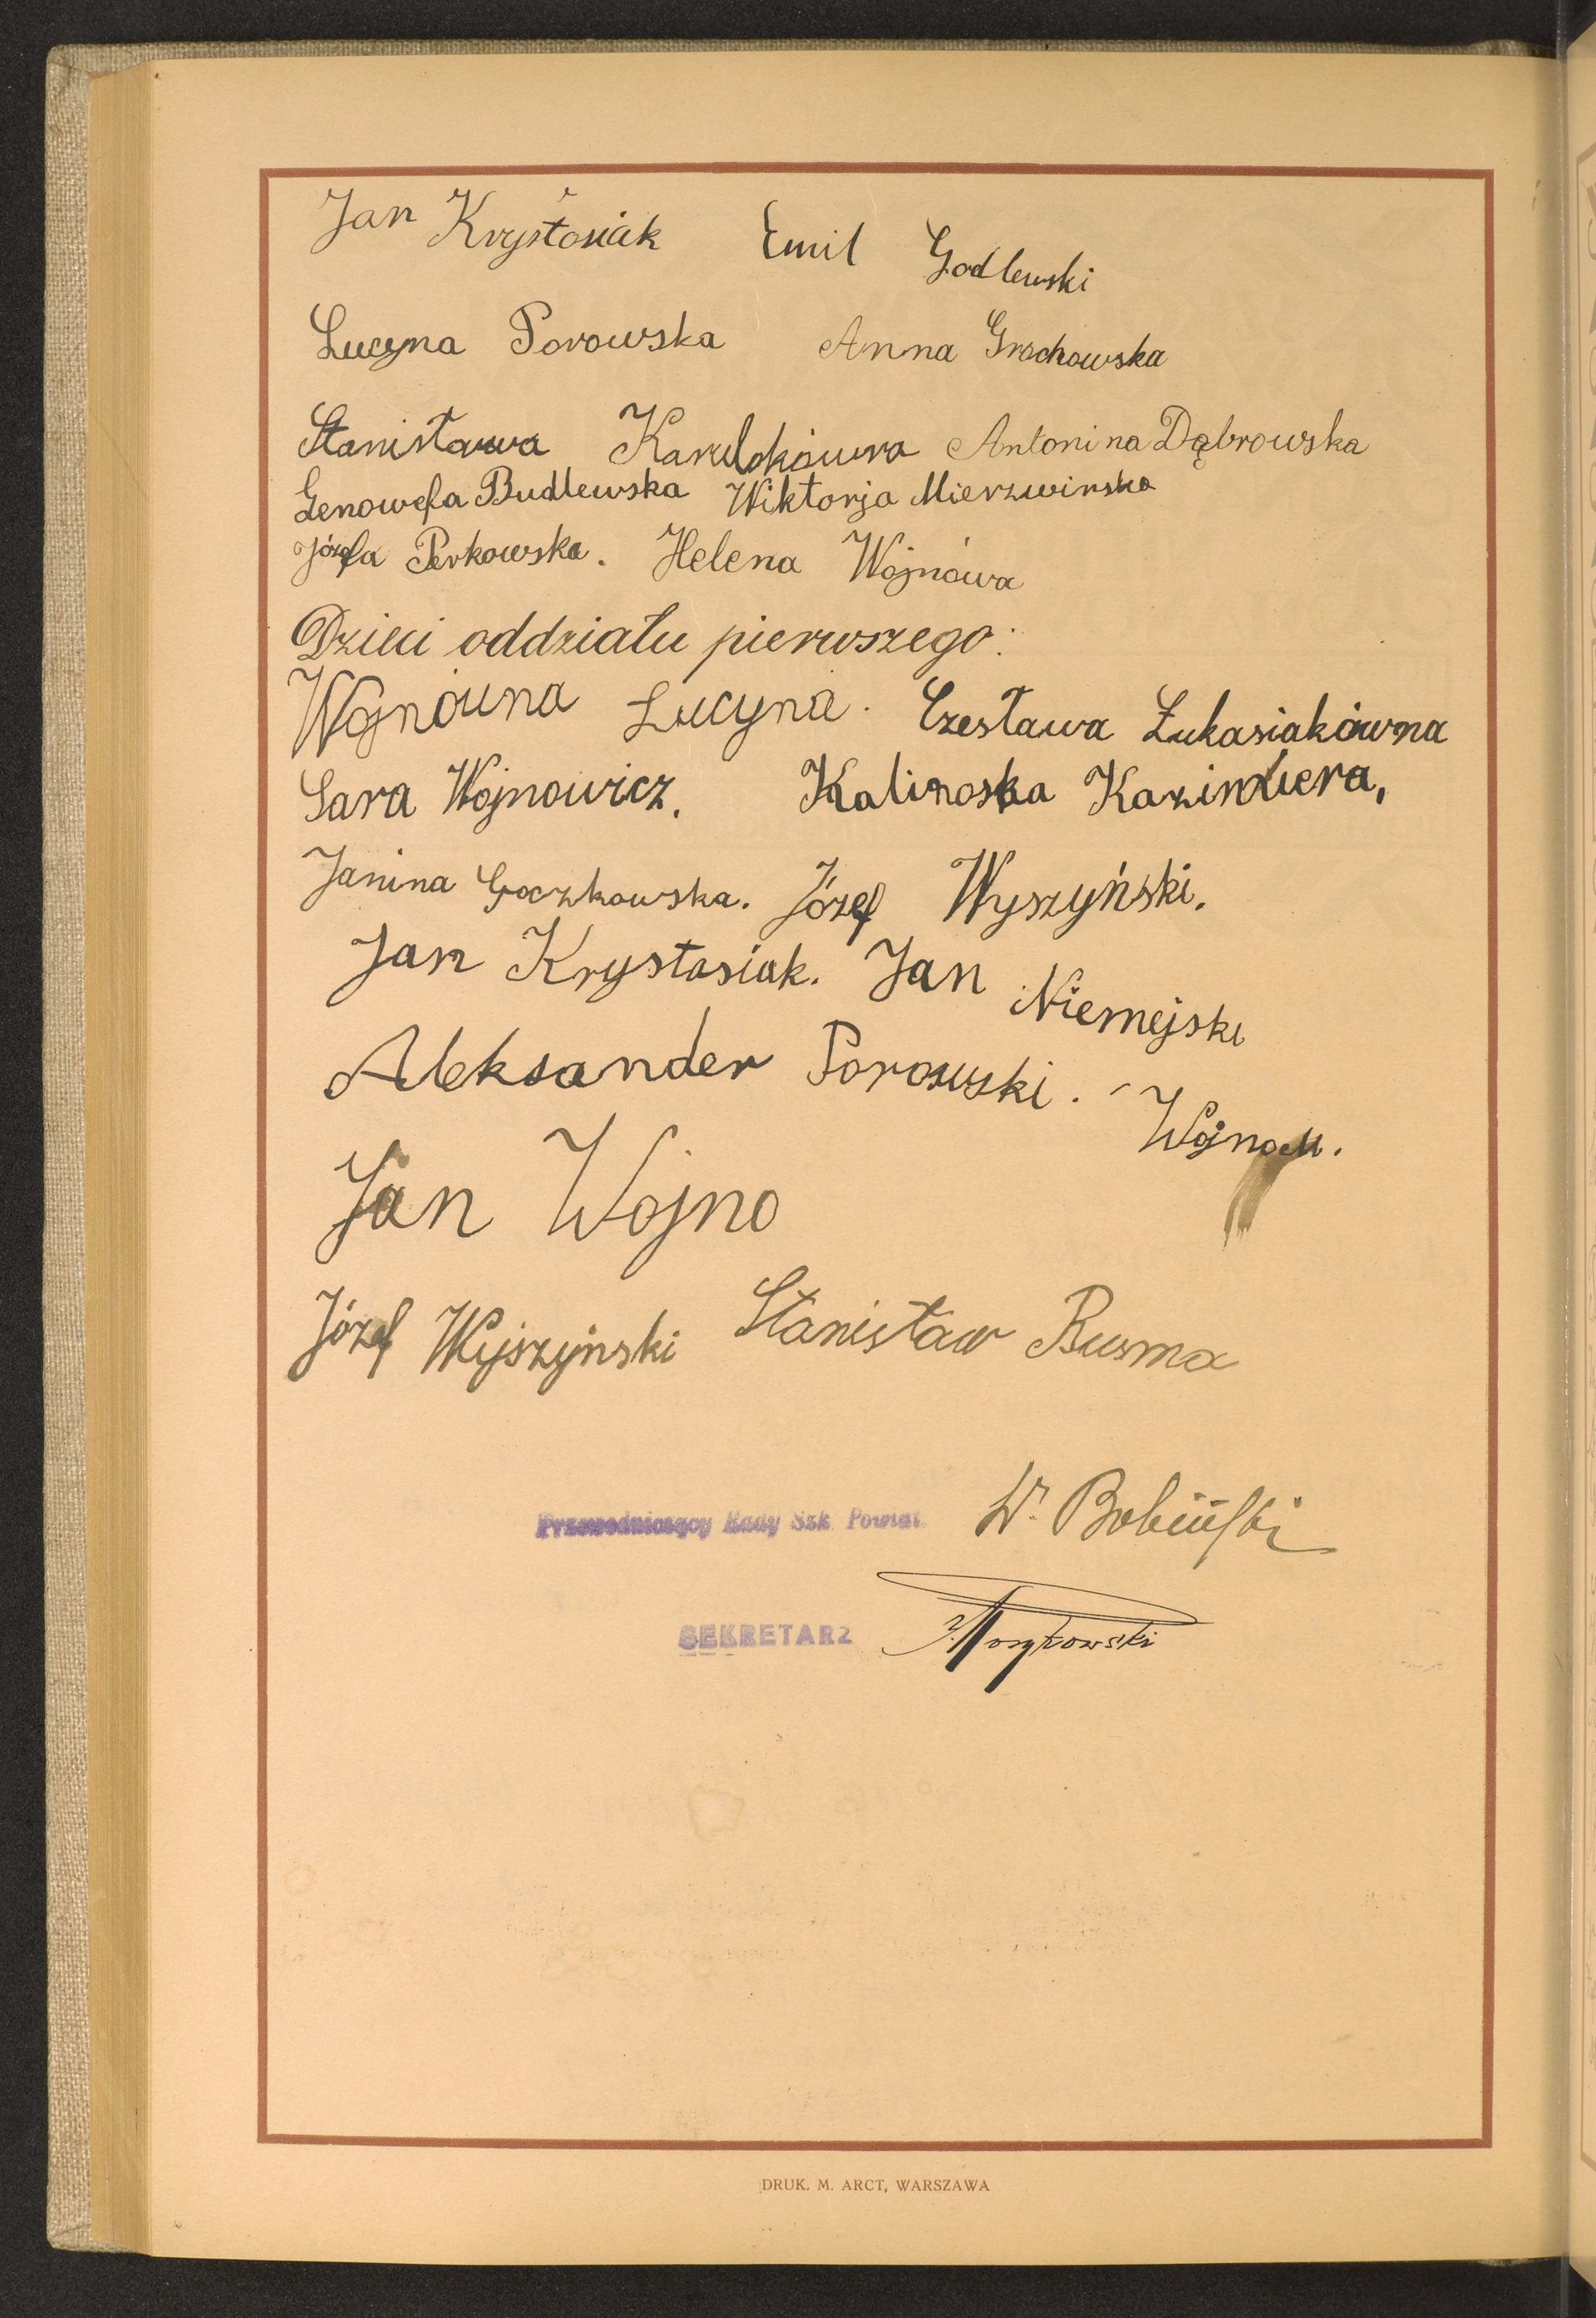 Jan Krystosiak Emil Godlewski
Lucyna Porowska Anna Grochowska
Stanisława Antonina Dąbrowska
Genowefa Budlewska Wiktorja Mierzwinska
Józefa Perkowska. Helena Wojnówa
Dzieci oddziału pierwszego:
Wojnówna Lucyna. Czesława Łukasiakówna
Sara Wojnowicz. Kalinoska Kazimiera,
Janina Goczkowska. Józef Wyszyński.
Jan Krystosiak. Jan Niemejski
Aleksander Porowski.
Wojno M.
Jan Wojno
Józef Wyszyński Stanisław Rusma
Przewodniczący Rady Szk. Powiat. W. Bobiński
SEKRETARZ
DRUK. M. ARCT, WARSZAWA